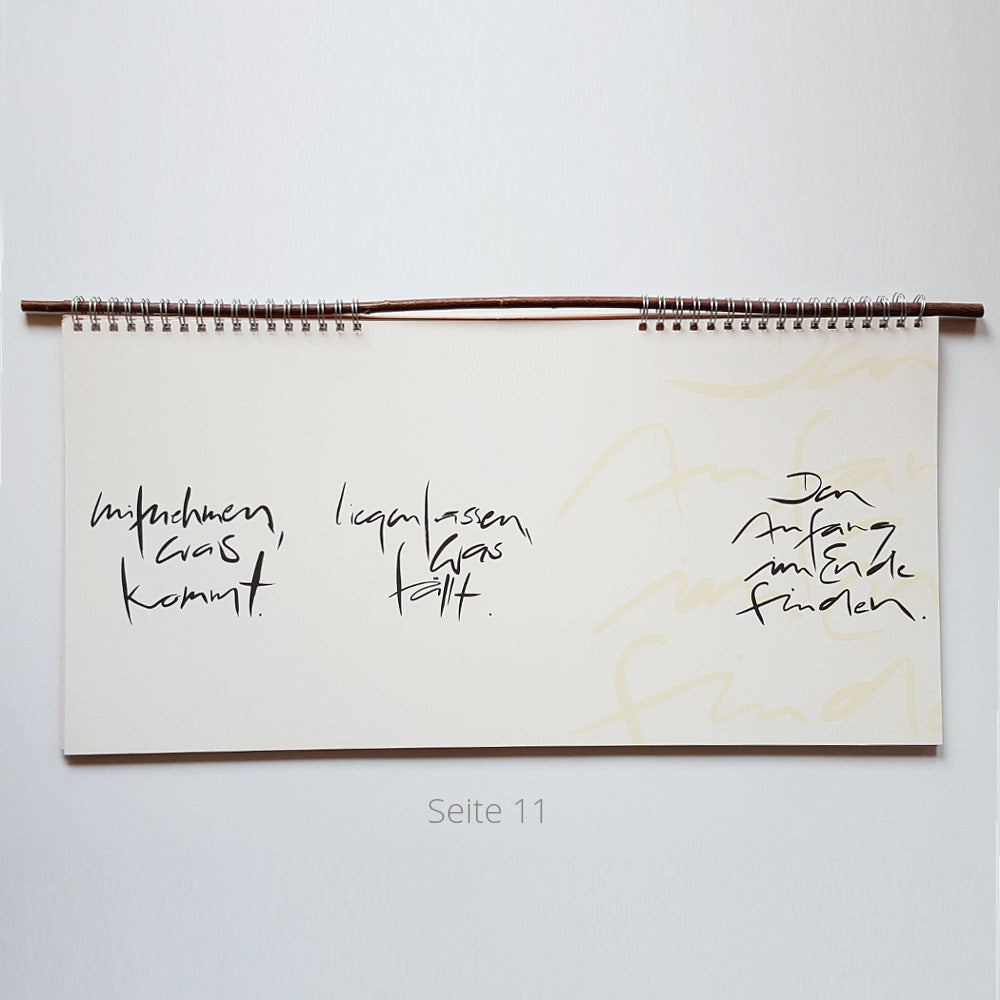 mitnehmen,
was
kommt.
liegenlassen,
was
fällt.
Den
Anfang
im Ende
finden.
Den
Anfan
im En
find
Seite 11